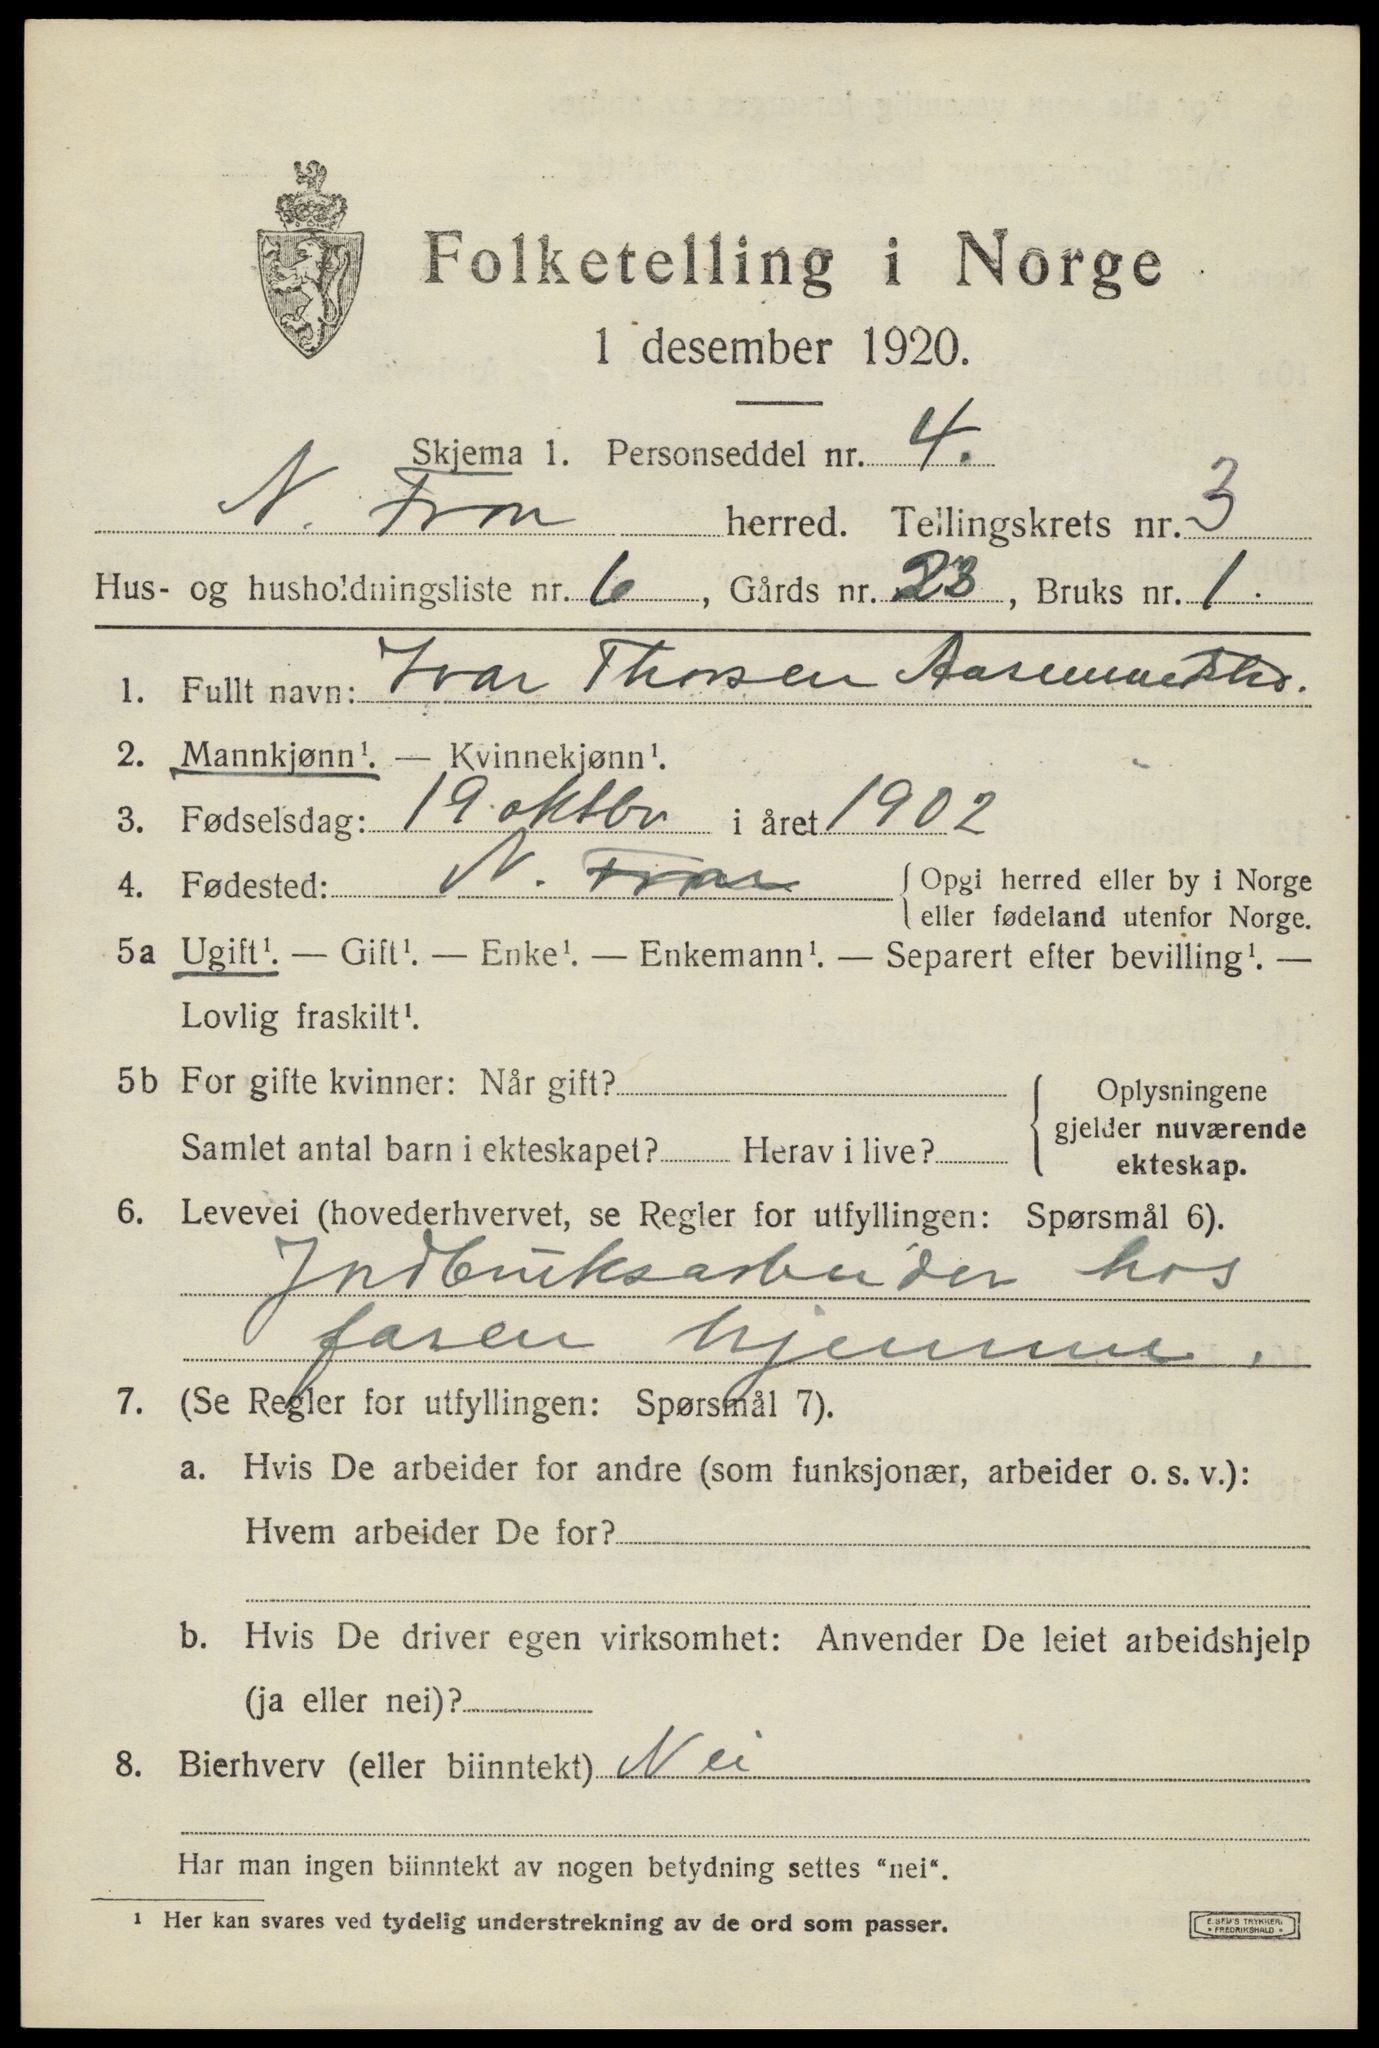 Folketelling i Norge
1 desember 1920.
Skjema 1. Personseddel nr. 4.
N. Fron herred. Tellingskrets nr. 3
Hus- og husholdningsliste nr. 6, Gårds nr. 23, Bruks nr. 1.
1. Fullt navn: Ivar Thorsen
2. Mannkjønn¹. — Kvinnekjønn¹.
3. Fødselsdag: 19 oktbr i året 1902
4. Fødested: N. Fron {Opgi herred eller by i Norge
eller fødeland utenfor Norge.
5a Ugift¹. — Gift¹. — Enke¹. — Enkemann¹. — Separert efter bevilling¹. —
Lovlig fraskilt¹.
5b For gifte kvinner: Når gift?
Samlet antal barn i ekteskapet? Herav i live?
{Oplysningene
gjelder nuværende
ekteskap.
6. Levevei (hovederhvervet, se Regler for utfyllingen: Spørsmål 6).
Jordbruksarbeider hos
faren hjemme.
7. (Se Regler for utfyllingen: Spørsmål 7).
a. Hvis De arbeider for andre (som funksjonær, arbeider o. s. v.):
Hvem arbeider De for?
b. Hvis De driver egen virksomhet: Anvender De leiet arbeidshjelp
(ja eller nei)?
8. Bierhverv (eller biinntekt) Nei
Har man ingen biinntekt av nogen betydning settes "nei".
¹ Her kan svares ved tydelig understrekning av de ord som passer.
E. SEM'S TRYKKERI
• FREDRIKSHALD •